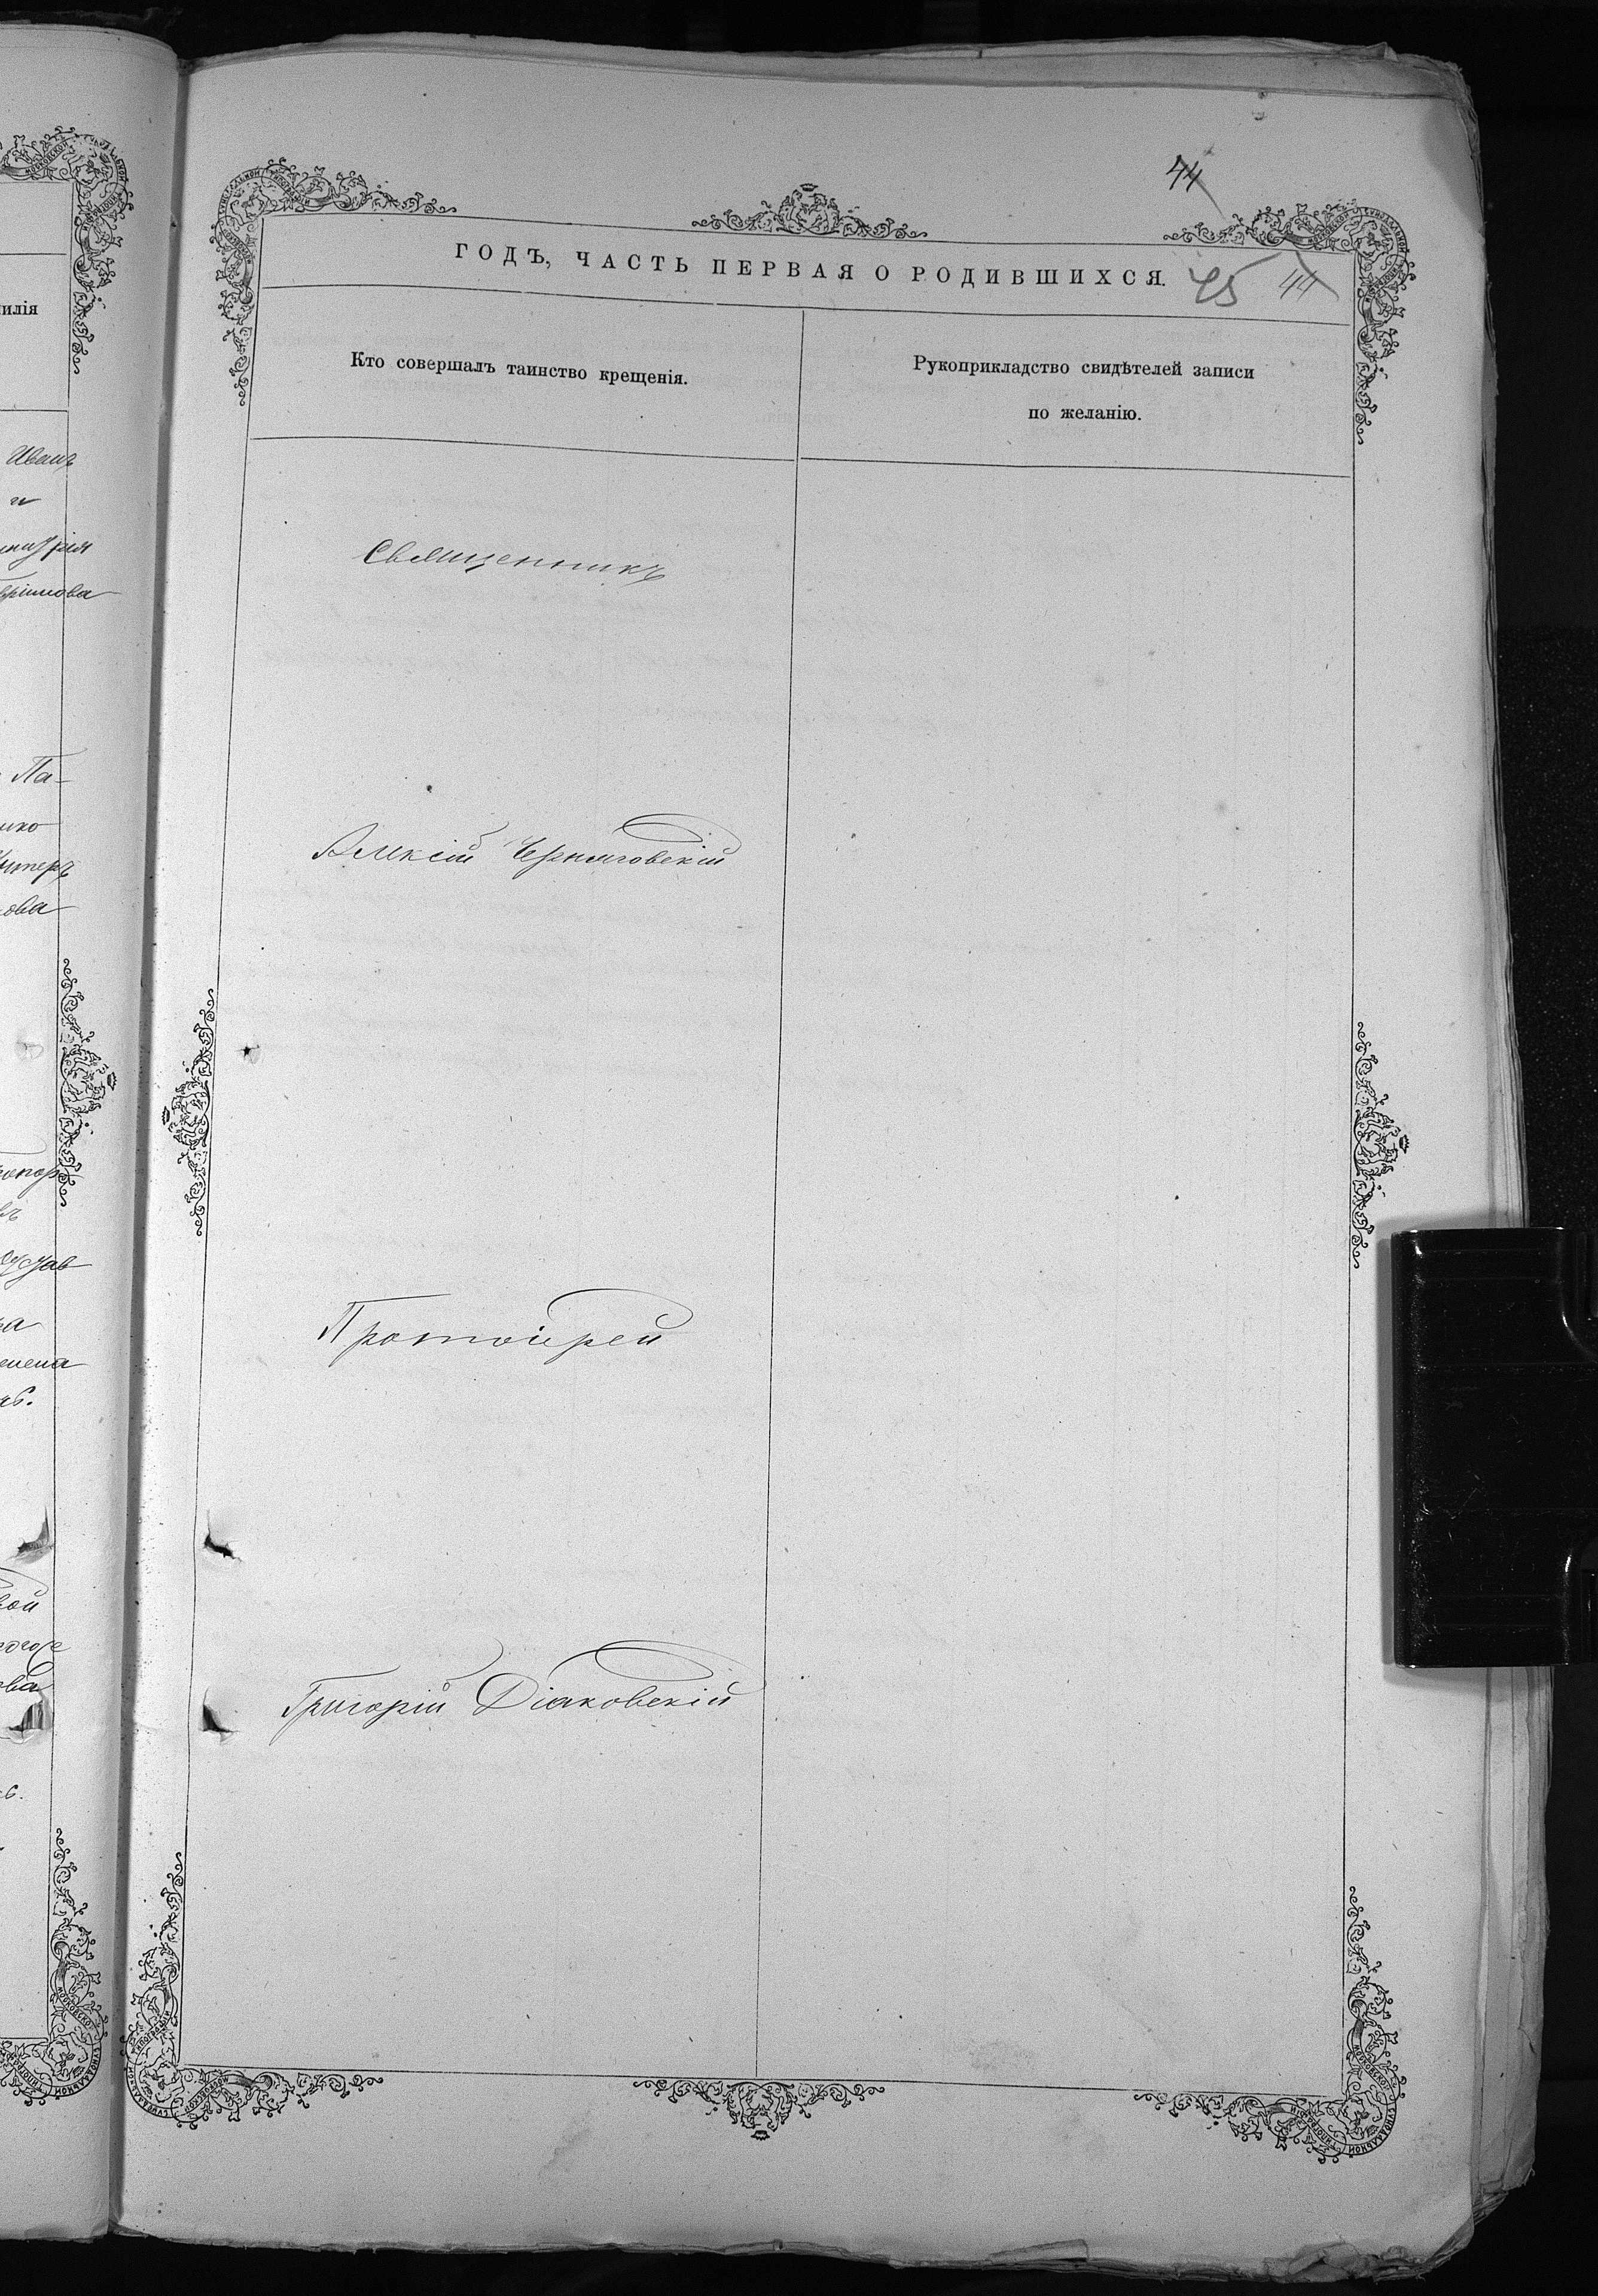 44
ГОДЪ, ЧАСТЬ ПЕРВАЯ О РОДИВШИХСЯ. 45 44
Кто совершалъ таинство крещенія.
Рукоприкладство свидѣтелей записи
по желанію.
Священникъ
Алексій Черняговскій
Протоіерей
Григорій Діаковскій
илія
Иванъ
и
Па-
ова